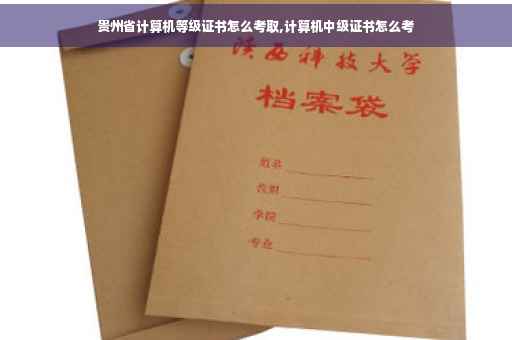 贵州省计算机等级证书怎么考取,计算机中级证书怎么考
陕西科技大学
档案袋
姓名
学院
专业